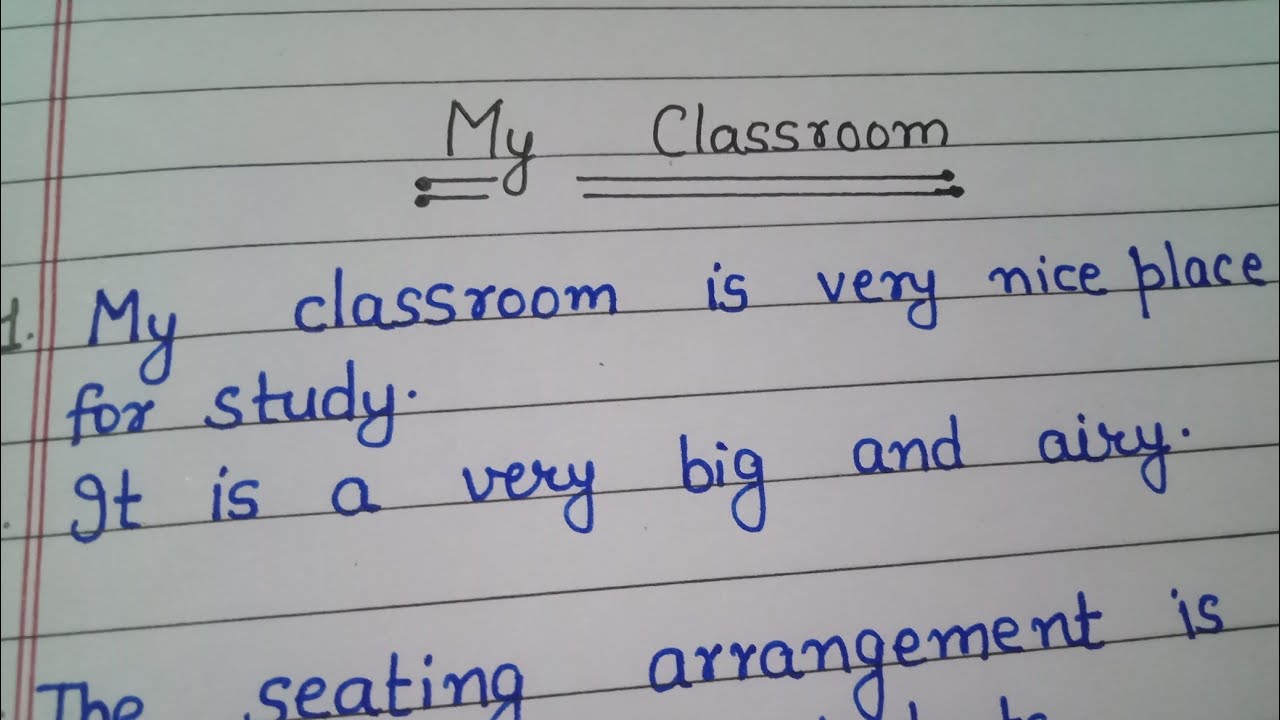 My Classroom
1. My classroom is very nice place
for study.
It is a very big and airy.
The seating arrangement is
to